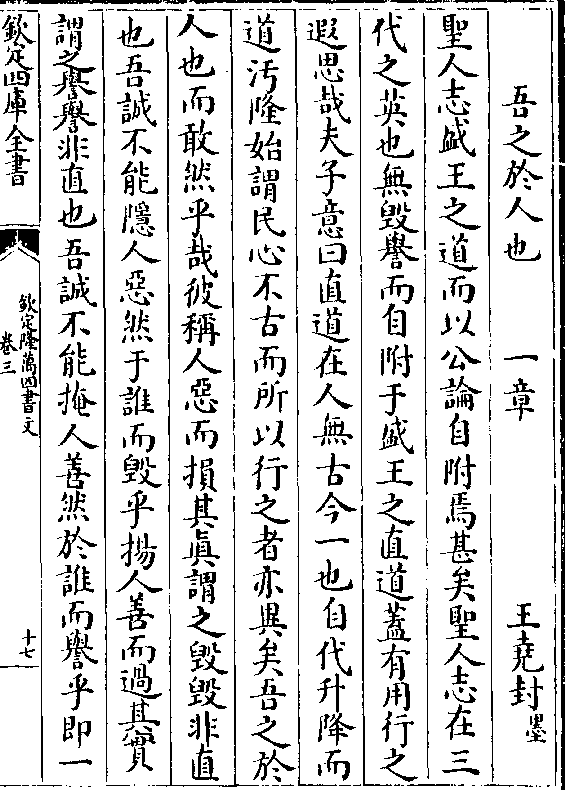 吾之於人也　一章　王堯封墨
聖人志盛王之道而以公論自附焉甚矣聖人志在三
代之英也無毀譽而自附于盛王之直道蓋有用行之
遐思哉夫子意曰直道在人無古今一也自代升降而
道汚隆始謂民心不古而所以行之者亦異矣吾之於
人也而敢然乎哉彼稱人惡而損其眞謂之毀毀非直
也吾誠不能隱人惡然于誰而毀乎揚人善而過其實
謂之譽譽非直也吾誠不能掩人善然於誰而譽乎即一
欽定四庫全書
欽定隆萬四書文
卷三
十七